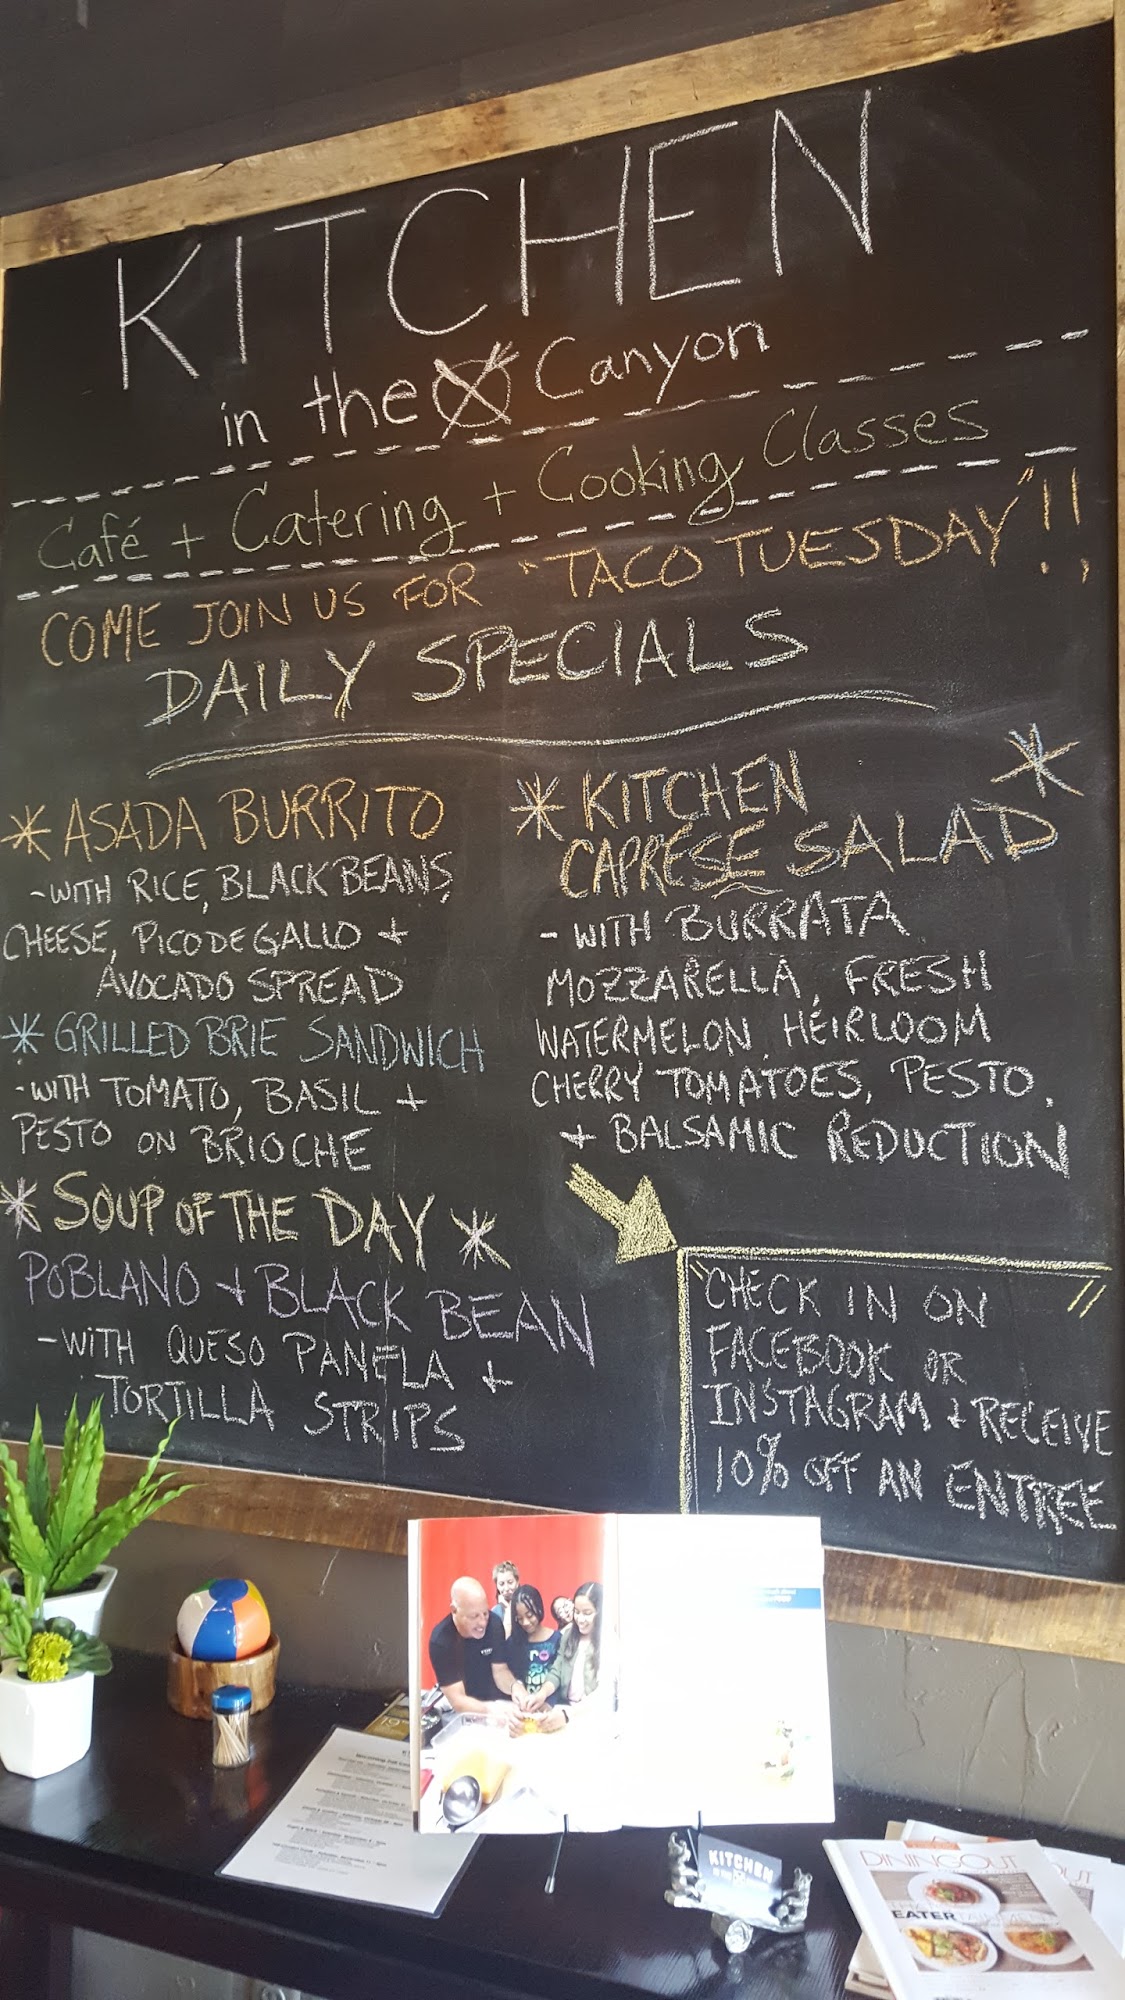 KITCHEN
in the Canyon
Café + Catering + Cooking Classes
COME JOIN US FOR "TACO TUESDAY"!!
DAILY SPECIALS
* ASADA BURRITO
- WITH RICE, BLACK BEANS,
CHEESE, PICO DE GALLO +
AVOCADO SPREAD
* GRILLED BRIE SANDWICH
- WITH TOMATO, BASIL +
PESTO ON BRIOCHE
* SOUP OF THE DAY *
POBLANO + BLACK BEAN
- WITH QUESO PANELA +
TORTILLA STRIPS
* KITCHEN *
CAPRESE SALAD
- WITH BURRATA
MOZZARELLA, FRESH
WATERMELON, HEIRLOOM
CHERRY TOMATOES, PESTO,
+ BALSAMIC REDUCTION
"CHECK IN ON
FACEBOOK OR
INSTAGRAM + RECEIVE
10% OFF AN ENTREE
KITCHEN
DININGOUT
EATERTAINMENT
OUT